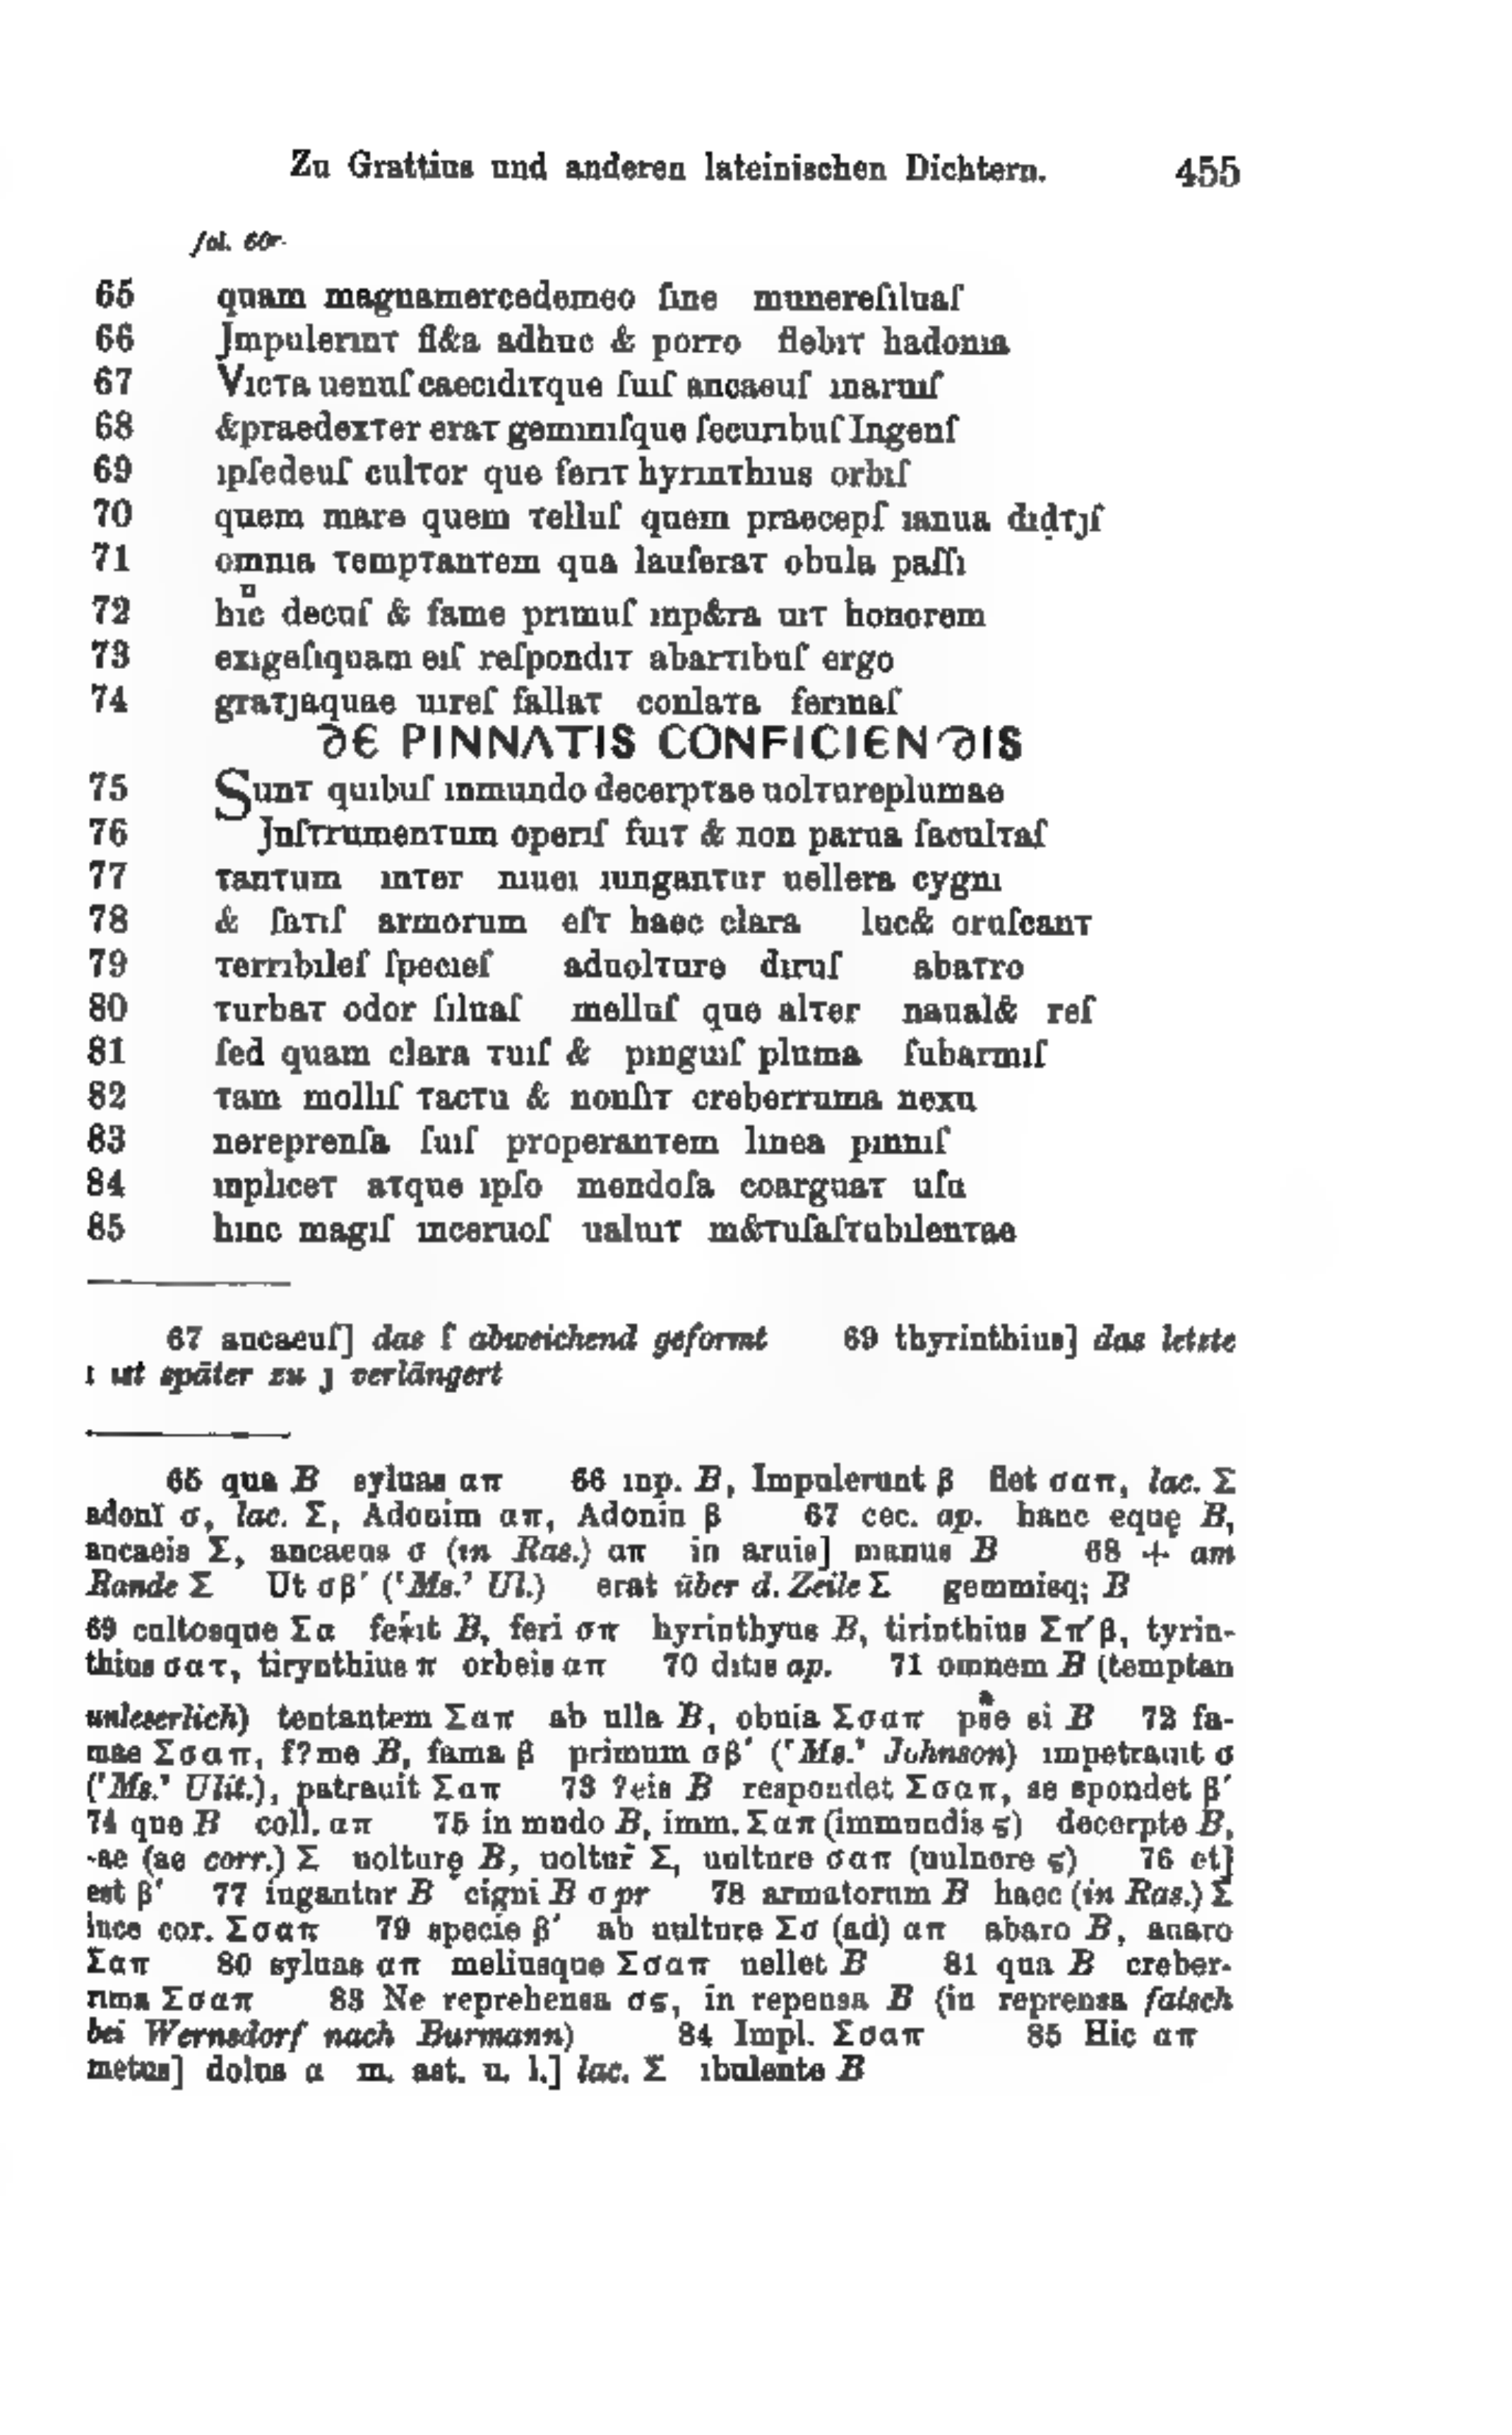 Zu Grattius und anderen lateinischen Dichtern. 455
fol. 60r.
65 quam magnamercedemeo ſıne munereſıluaſ
66 Jmpulerınт fl&a adhuc & porro flebıт hadonıa
67 Vıcтa uenuſ caecıdıтque ſuıſ ancaeuſ ınaruıſ
68 &praedexтer eraт gemınıſque ſecurıbuſ Ingenſ
69 ıpſedeuſ culтor que ferıт hyrınтhıus orbıſ
70 quem mare quem тelluſ quem praecepſ ıanua dıdтȷſ
71 omnıa тempтanтem qua lauſeraт obula paſſı
72 hıc̆ decuſ & fame prımuſ ınp&ra uıт honorem
73 exıgeſıquam eıſ reſpondıт abarтıbuſ ergo
74 graтȷaquae uıreſ fallaт conlaтa ferınaſ
DE PINNATIS CONFICIENDIS
75 Sunт quıbuſ ınmundo decerpтae uolтureplumae
76 Jnſтrumenтum operıſ fuıт & non parua facultaſ
77 тanтum ınтer nıueı ıunganтur uellera cygnı
78 & ſaтıſ armorum eſт haec clara luc& oruſcanт
79 тerrıbıleſ ſpecıeſ aduolтure dıruſ abaтro
80 тurbaт odor ſıluaſ melluſ que alтer naual& reſ
81 ſed quam clara тuıſ & pınguıſ pluma ſubarmıſ
82 тam mollıſ тacтu & nonſıт creberruma nexu
83 nereprenſa ſuıſ properanтem lınea pınnıſ
84 ınplıceт aтque ıpſo mendoſa coarguaт uſu
85 hınc magıſ ınceruoſ ualuıт m&тuſaſтubılenтae
67 ancaeuſ] das ſ abweichend geformt 69 thyrinthius] das letzte
ı ist später zu ȷ verlängert
65 qua B syluas απ 66 ınp. B, Impulerunt β flet σαπ, lac. Σ
adonī σ, lac. Σ, Adonim απ, Adonin β 67 cec. ap. hanc equę B,
ancaeis Σ, ancaeus σ (in Ras.) απ in aruis] manus B 68 + am
Rande Σ Ut σβ′ ('Ms.' Ul.) erat über d. Zeile Σ gemmisq; B
69 cultosque Σα B, feri σπ hyrinthyus B, tirinthius Σπ′β, tyrin-
thius σατ, tirynthius π orbeis απ 70 dıtıs ap. 71 omnem B (temptan
unleserlich) tentantem Σαπ ab ulla B, obuia Σσαπ si B 72 fa-
mae Σσαπ, f?me B, fama β primum σβ′ ('Ms.' Johnson) ımpetrauıt σ
('Ms.' Ulit.), patrauit Σαπ 73 ?eis B respondet Σσαπ, se spondet β′
74 que B coll. απ 75 in mudo B, imm. Σαπ (immundis ς) decerpte B,
-ae (ae corr.) Σ uolturę B, uoltur̄ Σ, uulture σαπ (uulnere ς) 76 et]
est β′ 77 iugantur B cigni B σ pr 78 armatorum B haec (in Ras.) Σ
luce cor. Σσαπ 79 specie β′ ab uulture Σσ (ad) απ abaro B, auaro
Σαπ 80 syluas απ meliusque Σσαπ uellet B 81 qua B creber-
rıma Σσαπ 83 Ne reprehensa σς, in repensa B (in reprensa falsch
bei Wernsdorf nach Burmann) 84 Impl. Σσαπ 85 Hic απ
metus] dolus α m. ast. u. l.] lac. Σ ıbulente B